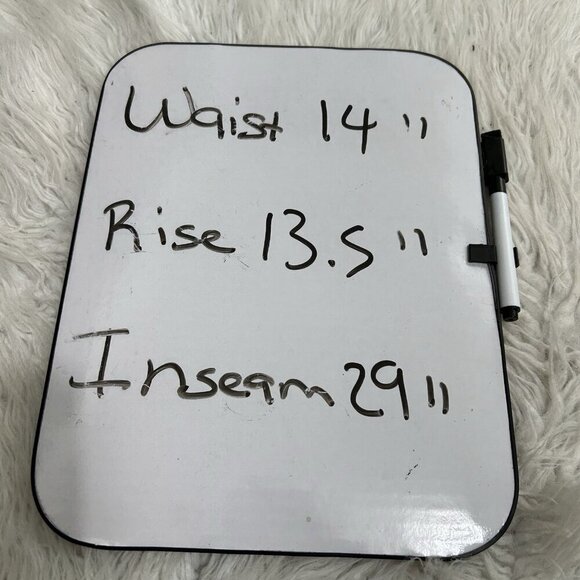 Waist 14"
Rise 13.5"
Inseam 29"